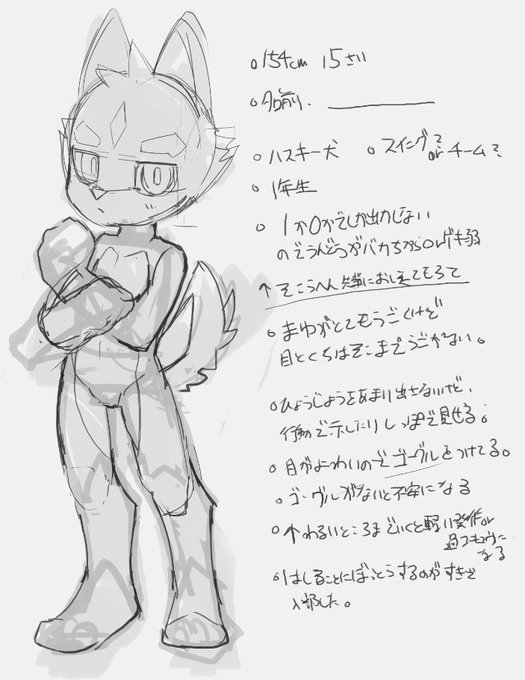 154cm 15さい
名前.
ハスキー犬
スイング? or チーム?
1年生
1か0かでしか出力しない
のでうんどうがバカぢからor ゲキ弱
↑そこらへん先輩におしえてもらて
まゆがとてもうごくけど
目とくちはそこまでうごかない。
ひょうじょうをあまり出さないけど、
行動で示したりしっぽで見せる。
目がよわいのでゴーグルをつけてる。
ゴーグルがないと不安になる
↑わるいところまでいくと軽い発作or
過コキュウに
なる
はしることにぼっとうするのがすきで
入部した。